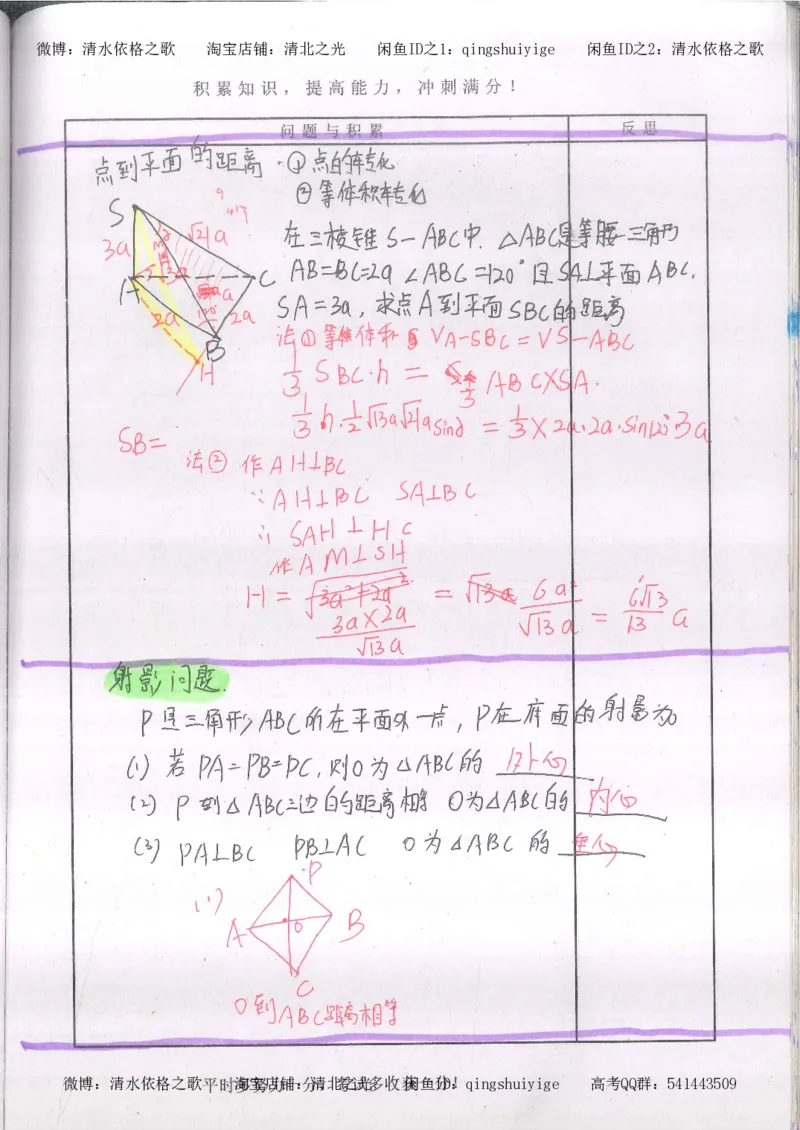 微博：清水依格之歌 淘宝店铺：清北之光 闲鱼ID之1：qingshuiyige 闲鱼ID之2：清水依格之歌
积累知识，提高能力，冲刺满分！
问题与积累 反思
点到平面的距离 ·①点的转化
②等体积转化
S
3a √21a
A C
2a 120° 2a
B
H
在三棱锥S-ABC中．△ABC是等腰三角形
AB=BC=2a ∠ABC=120°且SA⊥平面ABC．
SA=3a，求点A到平面SBC的距离
法①等体积 VA-SBC=VS-ABC
1/3 SBC·h = 1/3 ABC×SA．
1/3 h·1/2 √13a √21a sinα = 1/3×2a·2a·sin120°3a
SB=
法② 作AH⊥BC
∵AH⊥BC SA⊥BC
∴SAH⊥HC
作AM⊥SH
H= 3a×2a/√13a = 6a²/√13a = 6√13/13 a
射影问题．
P是三角形ABC所在平面外一点，P在底面的射影为o
(1) 若PA=PB=PC，则O为△ABC的 外心
(2) P到△ABC三边的距离相等 O为△ABC的 内心
(3) PA⊥BC PB⊥AC O为△ABC的 垂心
(1) P
A O B
C
O到ABC距离相等
微博：清水依格之歌 淘宝店铺：清北之光 闲鱼ID之1：qingshuiyige 高考QQ群：541443509